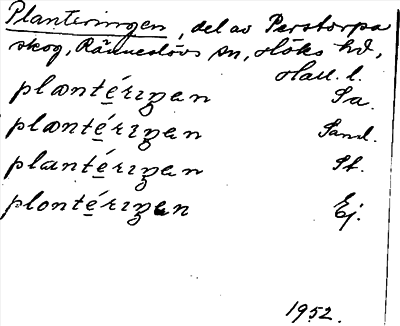 Planteringen, del av Perstorpa
skog, Ränneslövs sn, Höks hd,
Hall. l.
plantériŋan Sa.
plantériŋan Sand.
plantériŋan St.
plontériŋan Ej.
1952.